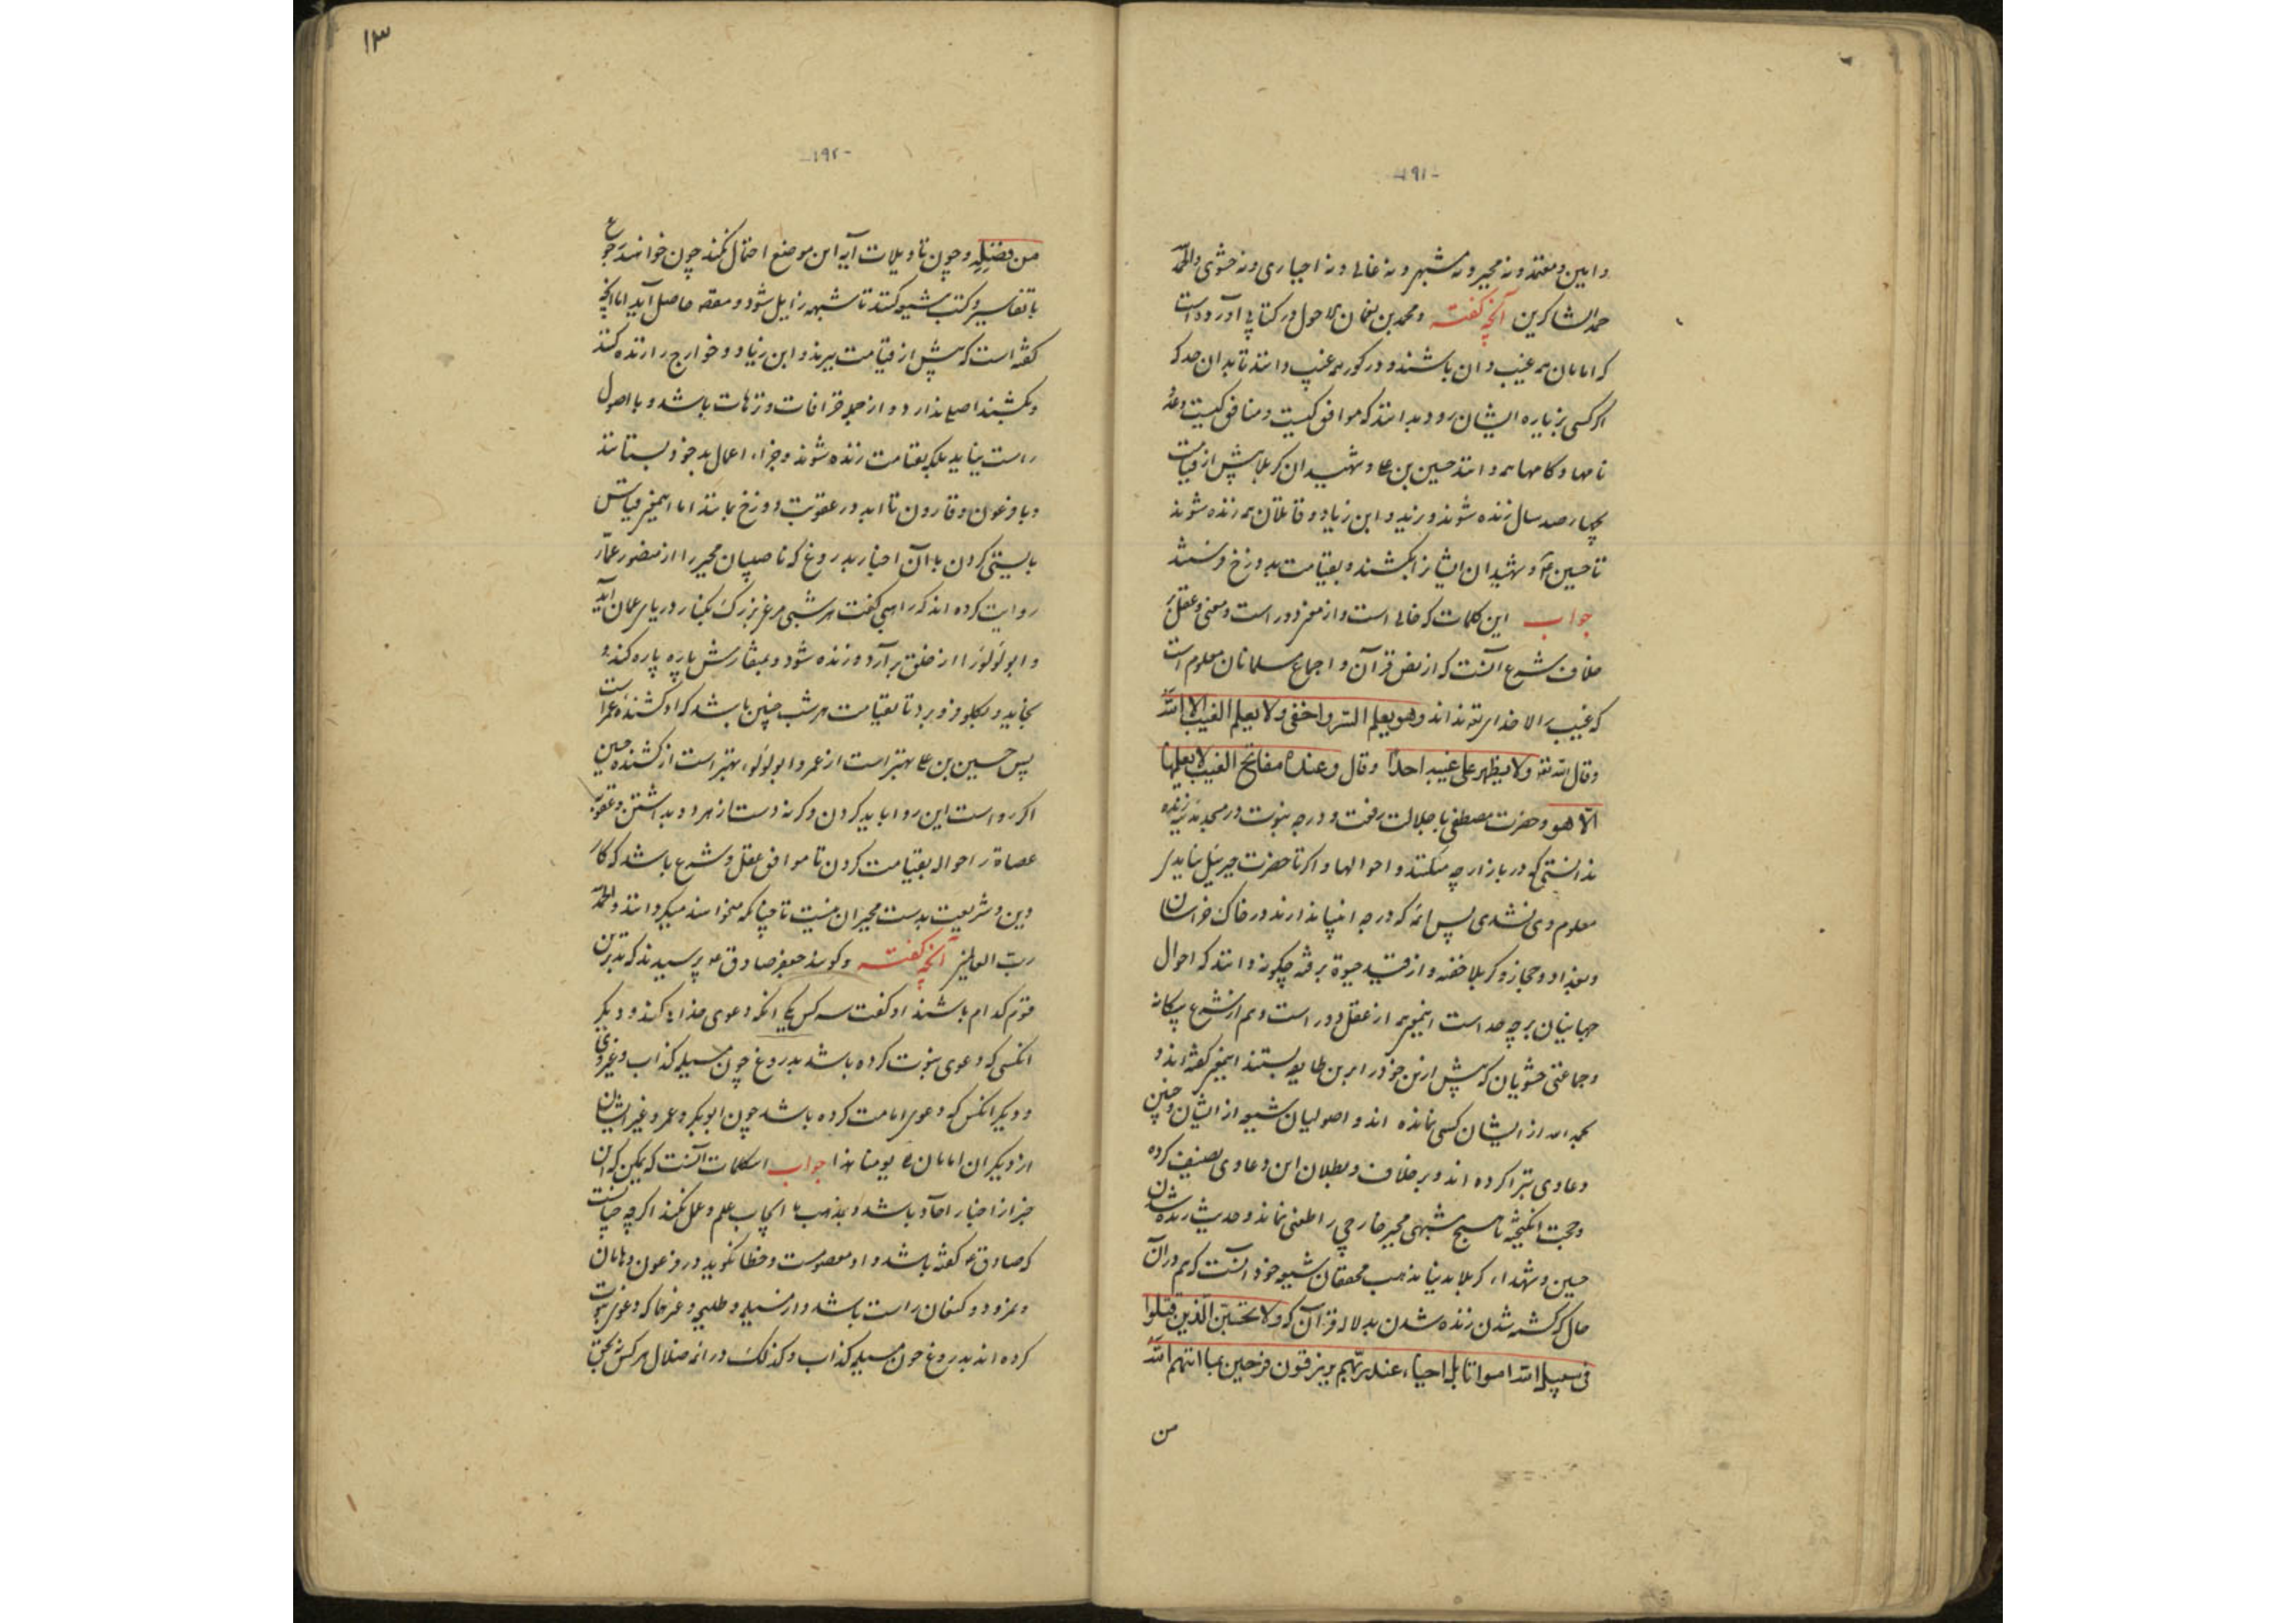 -۱۹۱-
و امین و معتمد و نه مجبر و نه مشبهی و نه غالی و نه اخباری و نه حشوی والحمد لله
حمد الشاکرین آنچه گفته و محمد بن نعمان الاحول در کتابی آورده است
که امامان همه غیب دان باشند و در گور هم غیب دانند تا بدان حد که
اگر کسی بزیاره ایشان رود بدانند که موافق کیست و منافق کیست و عدد
نامها و کامها همه دانند حسین بن علی و شهیدان کربلا پیش از قیامت
بچهارصد سال زنده شوند و ابن زیاد و قاتلان هم زنده شوند
تا حسین و شهیدان ایشانرا بکشند و بقیامت بدوزخ فرستند
جواب این کلمات که خالی است و از مغز دور است و معنی و عقل بر
خلاف شرع آنست که از نص قرآن و اجماع مسلمانان معلوم است
که غیب الا خدای تعه نداند وهو یعلم السر واخفی ولا یعلم الغیب الا الله
وقال الله تعه ولا یظهر علی غیبه احدا وقال وعنده مفاتح الغیب لا یعلمها
الا هو و حضرت مصطفی با جلالت رفعت و درجه نبوت در مسجد مدینه زنده
ندانستی که در بازار چه میکنند و احوالها و اگر تا حضرت جبرئیل نیاید
معلوم وی نشدی پس ائمه که درجه انبیا ندارند در خاک خراسان
و بغداد و حجاز و کربلا خفته و از قید حیوة برفته چگونه دانند که احوال
جهانیان بر چه حد است اینمعنی هم از عقل دور است و هم از شرع بیگانه
و جماعتی حشویان که پیش ازین خود را برین طایفه بستند اینمعنی گفته‌اند و
بحمد الله از ایشان کسی نمانده اند و اصولیان شیعه از ایشان و چنین
دعاوی تبرا کرده اند و بر خلاف و بطلان این دعاوی تصنیف کرده
و حجت انگیخته تا هیچ مشبهی مجبر خارجی را طعنی نماند و حدیث زنده شدن
حسین و شهداء کربلا بدنیا مذهب محققان شیعه خود آنست که هم در آن
حال که کشته شدن زنده شدن بدلاله قرآن که ولا تحسبن الذین قتلوا
فی سبیل الله امواتا بل احیاء عند ربهم یرزقون فرحین بما اتیهم الله
من
۱۳
-۱۹۲-
من فضله و چون تاویلات آیه این موضع احتمال نکند چون خوانند رجوع
با تفاسیر و کتب شیعه کنند تا شبهه زایل شود و مقصد حاصل آید اما آنچه
گفته است که پیش از قیامت بیرند و ابن زیاد و خوارج را زنده کنند
و بکشند اصلی ندارد و از جمله خرافات و ترهات باشد و با اصول
راست نیاید بلکه بقیامت زنده شوند و جزاء اعمال بد خود بستانند
و با فرعون و قارون تا ابد در عقوبت دوزخ بمانند اما اینمعنی قیاس
بایستی کردن با آن اخبار بدروغ که ناصبیان مجبر را از منصور عمار
روایت کرده اند که راهبی گفت هر شبی مرغ بزرگ بکنار دریای عمان آید
و ابولولو را از حلق برآرد و زنده شود و بمنقارش پاره پاره کند و
بخاید و بگلو فرو برد تا بقیامت هر شب چنین باشد که او کشنده عمر است
پس حسین بن علی بهتر است از عمر و ابولولوء بهتر است از کشنده حسین
اگر رواست این روا باید کردن و گرنه دست از هر دو بداشتن و عقوبت
عصاة را حواله بقیامت کردن تا موافق عقل و شرع باشد که کار
دین و شریعت بدست مجبران نیست تا چنانکه میخواهند میگردانند والحمد لله
رب العالمین آنچه گفته و گویند جعفر صادق عه پرسیدند که بدترین
قوم کدام باشند او گفت سه کس یکی آنکه دعوی خدایی کند و دیگر
آنکسی که دعوی نبوت کرده باشد بدروغ چون مسیلمه کذاب و غیر وی
و دیگر آنکس که دعوی امامت کرده باشد چون ابوبکر و عمر و غیر ایشان
از دیگران امامان یومنا هذا جواب این کلمات آنست که ممکن که این
خبر از اخبار آحاد باشد و بمذهب ما ایجاب علم و عمل نکند اگر چنانست
که صادق عه گفته باشد و او معصومست و خطا نگوید در فرعون و هامان
و نمرود و کنعان راست باشد و از مسیلمه و طلیحه و غیرها که دعوی نبوت
کرده اند بدروغ چون مسیلمه کذاب و کذلک در ائمه ضلال هر کس نه بحق